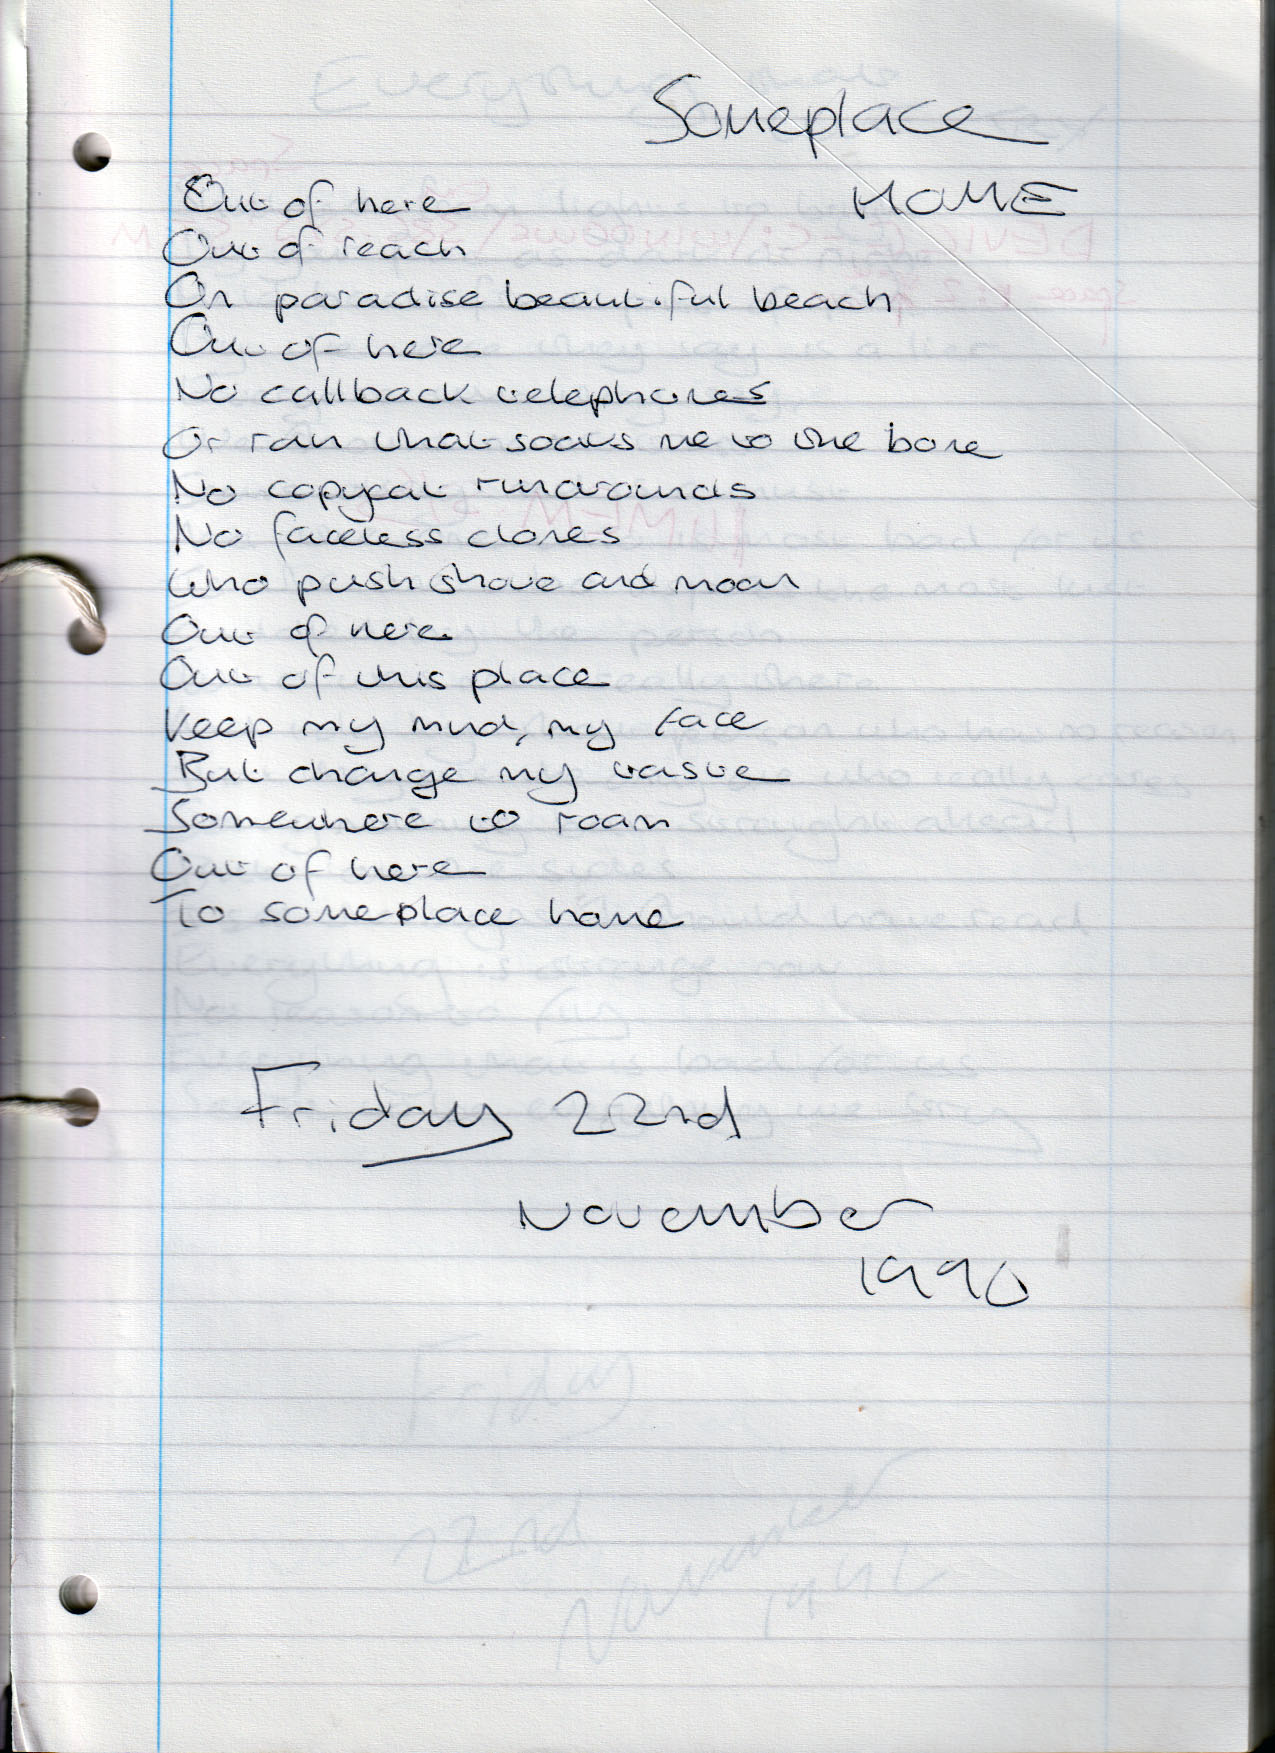 Someplace
HOME
Out of here
Out of reach
On paradise beautiful beach
Out of here
No callback telephones
Or rain that soaks me to the bone
No copycat runarounds
No faceless clones
Who push shove and moan
Out of here
Out of this place
Keep my mind, my face
But change my taste
Somewhere to roam
Out of here
To someplace home
Friday 22nd
November
1990